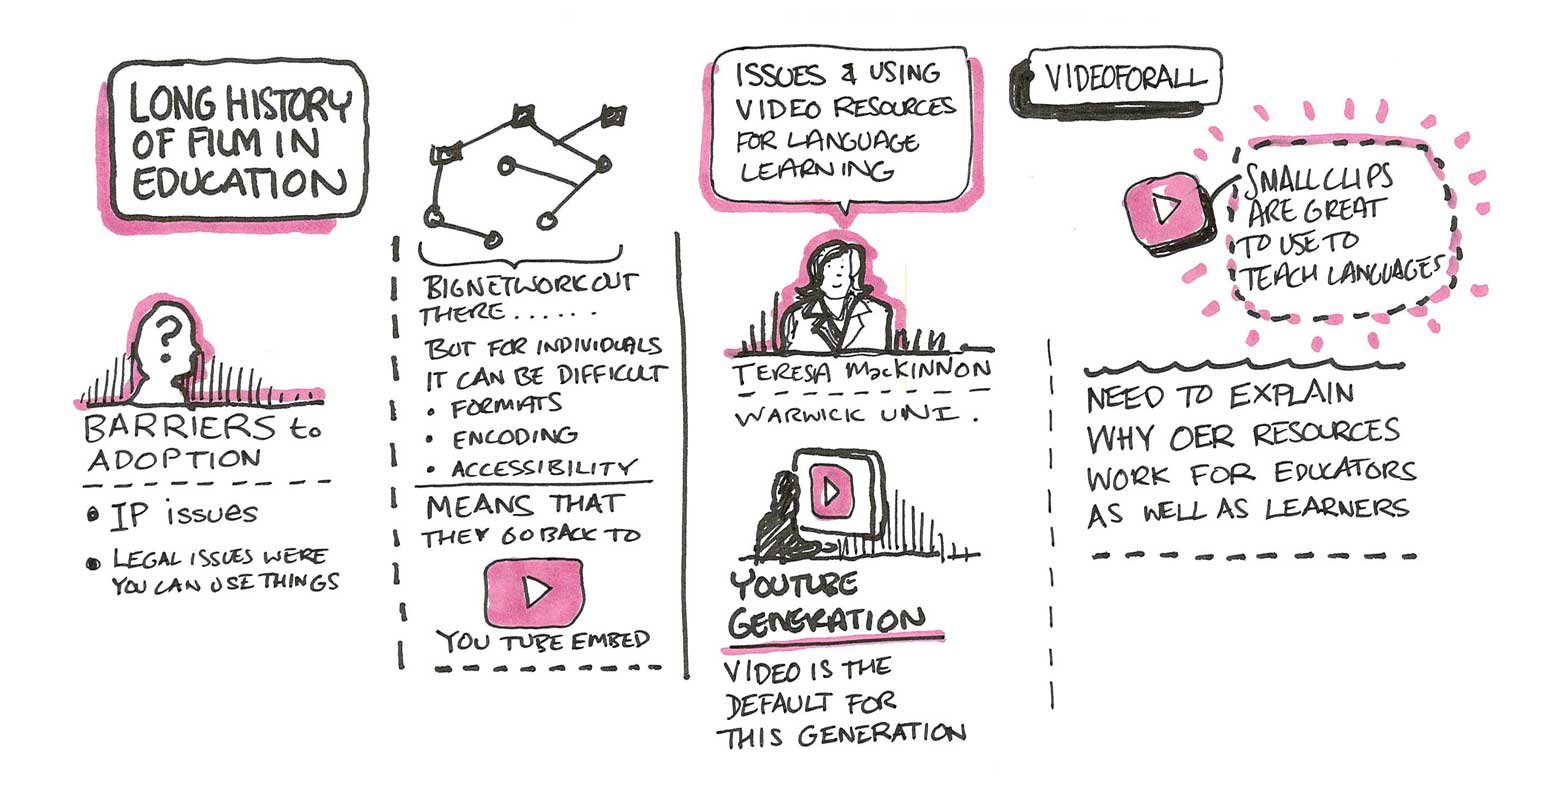 LONG HISTORY
OF FILM IN
EDUCATION
?
BARRIERS to
ADOPTION
• IP issues
• LEGAL ISSUES WERE
YOU CAN USE THINGS
BIG NETWORK OUT
THERE......
BUT FOR INDIVIDUALS
IT CAN BE DIFFICULT
• FORMATS
• ENCODING
• ACCESSIBILITY
MEANS THAT
THEY GO BACK TO
YOU TUBE EMBED
ISSUES & USING
VIDEO RESOURCES
FOR LANGUAGE
LEARNING
TERESA MacKINNON
WARWICK UNI.
YOUTUBE
GENERATION
VIDEO IS THE
DEFAULT FOR
THIS GENERATION
VIDEOFORALL
SMALL CLIPS
ARE GREAT
TO USE TO
TEACH LANGUAGES
NEED TO EXPLAIN
WHY OER RESOURCES
WORK FOR EDUCATORS
AS WELL AS LEARNERS